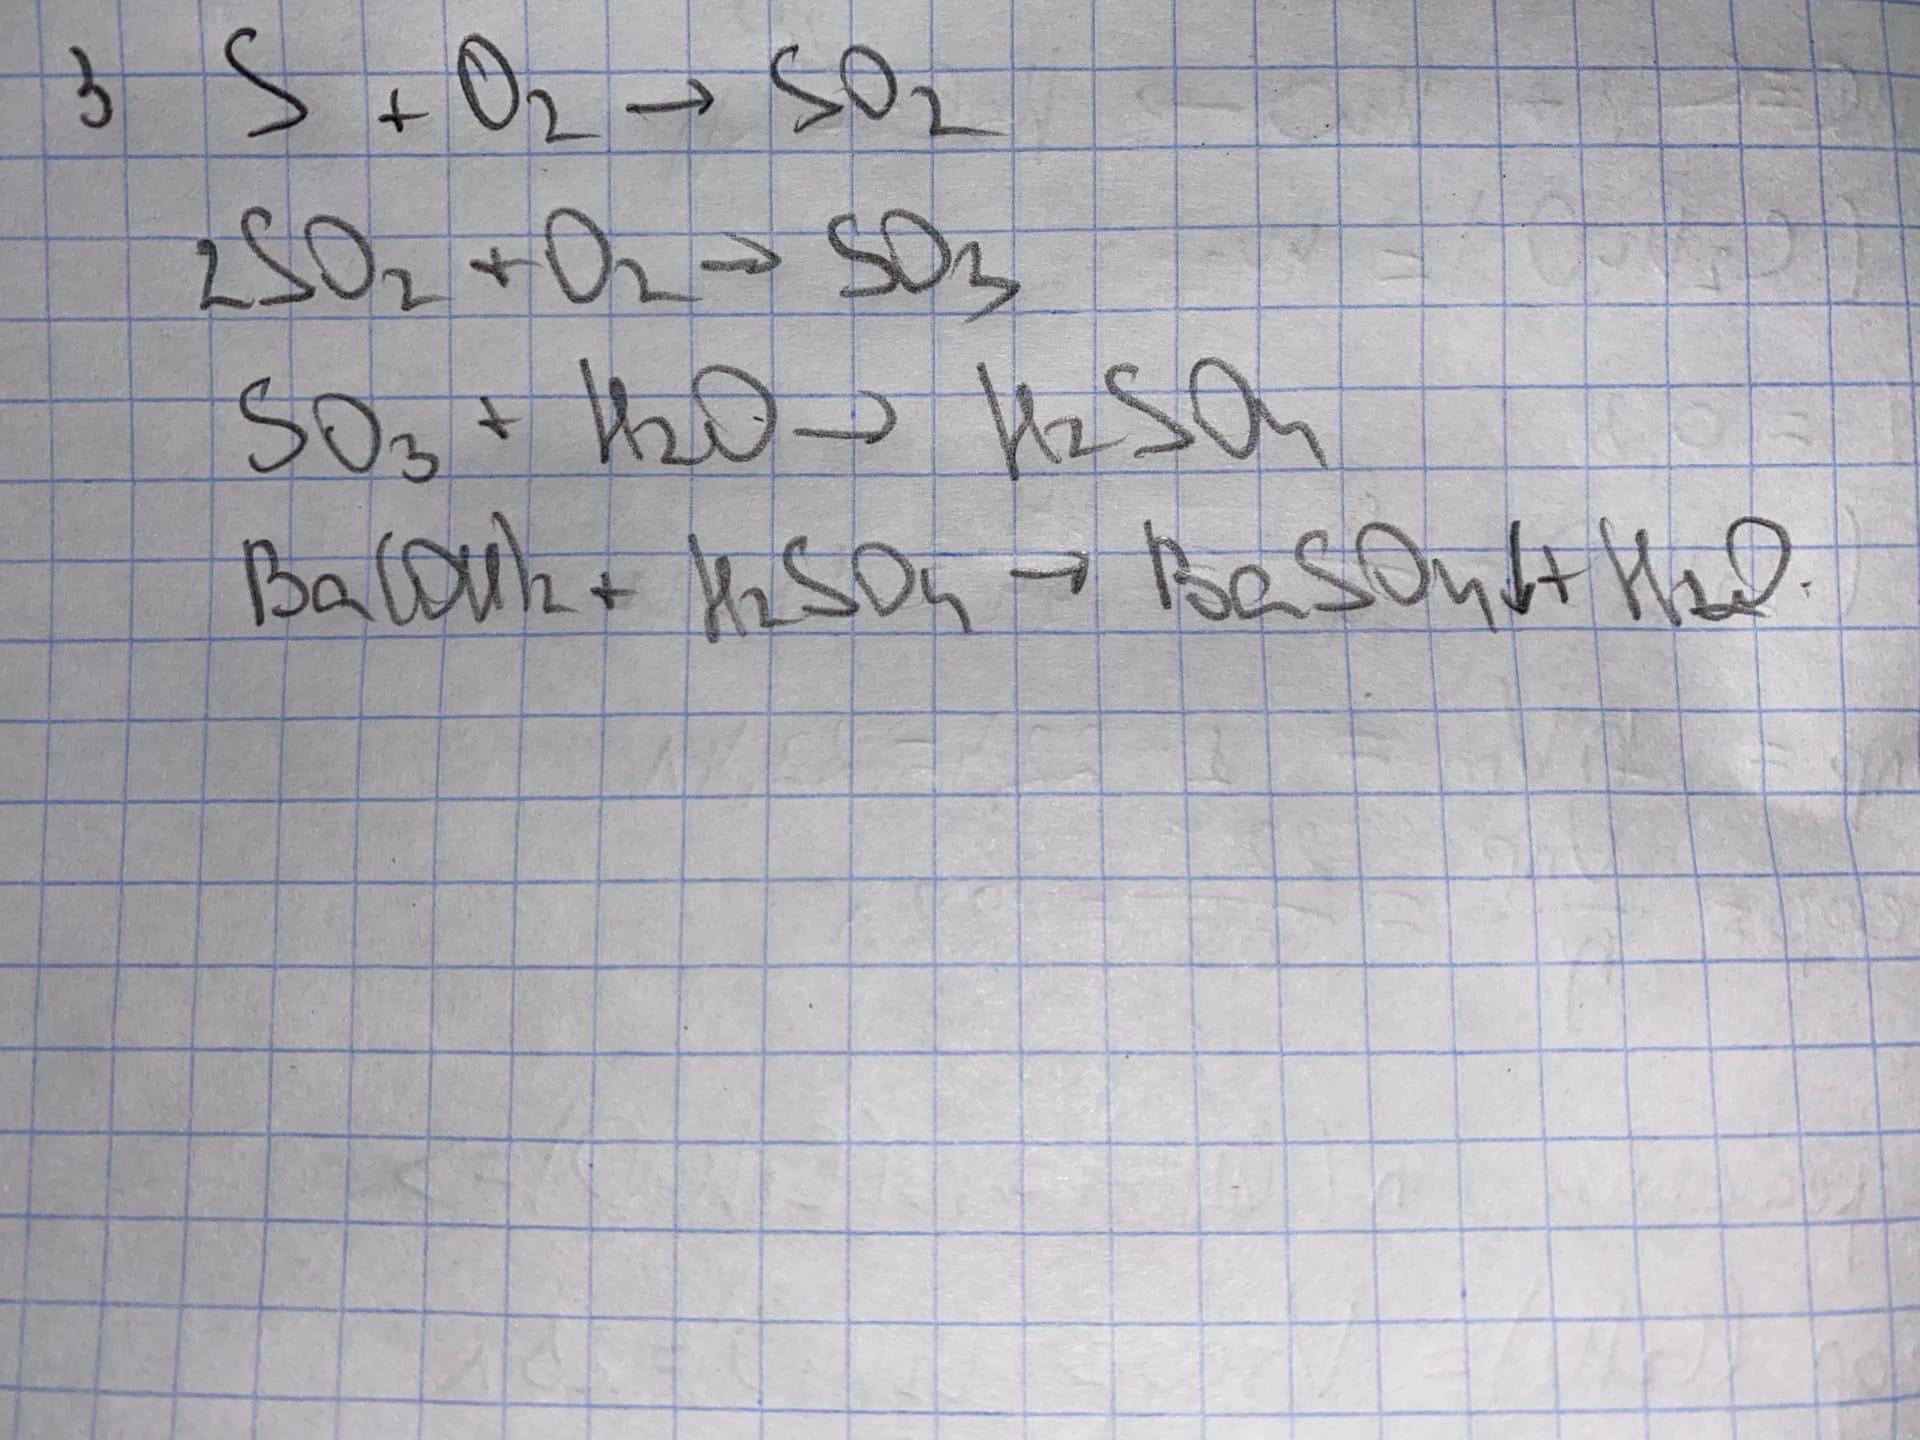 3 S + O₂ → SO₂
2SO₂ + O₂ → SO₃
SO₃ + H₂O → H₂SO₄
Ba(OH)₂ + H₂SO₄ → BaSO₄↓ + H₂O.